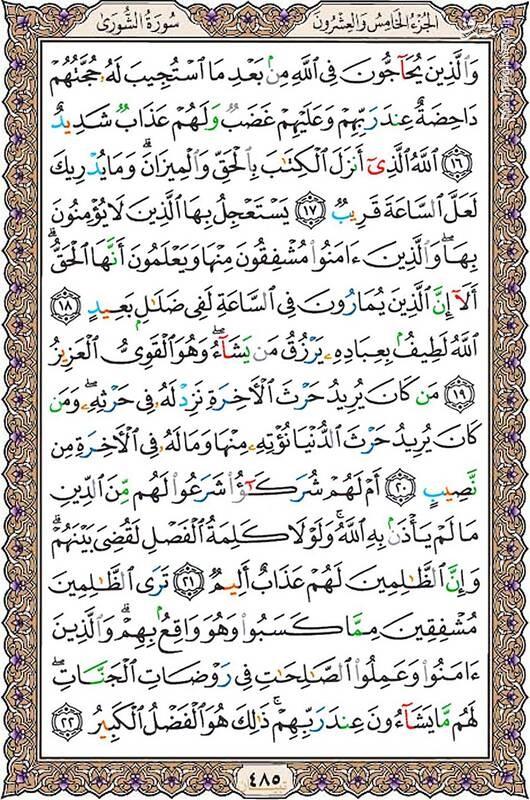 الجزء الخامس والعشرون
سورة الشورى
وَالَّذِينَ يُحَآجُّونَ فِي اللَّهِ مِنۢ بَعْدِ مَا ٱسْتُجِيبَ لَهُۥ حُجَّتُهُمْ
دَاحِضَةٌ عِندَ رَبِّهِمْ وَعَلَيْهِمْ غَضَبٌ وَلَهُمْ عَذَابٌ شَدِيدٌ
﴿١٦﴾ ٱللَّهُ ٱلَّذِىٓ أَنزَلَ ٱلْكِتَٰبَ بِٱلْحَقِّ وَٱلْمِيزَانَ ۗ وَمَا يُدْرِيكَ
لَعَلَّ ٱلسَّاعَةَ قَرِيبٌ ﴿١٧﴾ يَسْتَعْجِلُ بِهَا ٱلَّذِينَ لَا يُؤْمِنُونَ
بِهَا ۖ وَٱلَّذِينَ ءَامَنُوا۟ مُشْفِقُونَ مِنْهَا وَيَعْلَمُونَ أَنَّهَا ٱلْحَقُّ ۗ
أَلَآ إِنَّ ٱلَّذِينَ يُمَارُونَ فِى ٱلسَّاعَةِ لَفِى ضَلَٰلٍۭ بَعِيدٍ ﴿١٨﴾
ٱللَّهُ لَطِيفٌۢ بِعِبَادِهِۦ يَرْزُقُ مَن يَشَآءُ ۖ وَهُوَ ٱلْقَوِىُّ ٱلْعَزِيزُ
﴿١٩﴾ مَن كَانَ يُرِيدُ حَرْثَ ٱلْـَٔاخِرَةِ نَزِدْ لَهُۥ فِى حَرْثِهِۦ ۖ وَمَن
كَانَ يُرِيدُ حَرْثَ ٱلدُّنْيَا نُؤْتِهِۦ مِنْهَا وَمَا لَهُۥ فِى ٱلْـَٔاخِرَةِ مِن
نَّصِيبٍ ﴿٢٠﴾ أَمْ لَهُمْ شُرَكَٰٓؤُا۟ شَرَعُوا۟ لَهُم مِّنَ ٱلدِّينِ
مَا لَمْ يَأْذَنۢ بِهِ ٱللَّهُ ۚ وَلَوْلَا كَلِمَةُ ٱلْفَصْلِ لَقُضِىَ بَيْنَهُمْ ۗ
وَإِنَّ ٱلظَّٰلِمِينَ لَهُمْ عَذَابٌ أَلِيمٌ ﴿٢١﴾ تَرَى ٱلظَّٰلِمِينَ
مُشْفِقِينَ مِمَّا كَسَبُوا۟ وَهُوَ وَاقِعٌۢ بِهِمْ ۗ وَٱلَّذِينَ
ءَامَنُوا۟ وَعَمِلُوا۟ ٱلصَّٰلِحَٰتِ فِى رَوْضَاتِ ٱلْجَنَّاتِ ۖ
لَهُم مَّا يَشَآءُونَ عِندَ رَبِّهِمْ ۚ ذَٰلِكَ هُوَ ٱلْفَضْلُ ٱلْكَبِيرُ ﴿٢٢﴾
٤٨٥